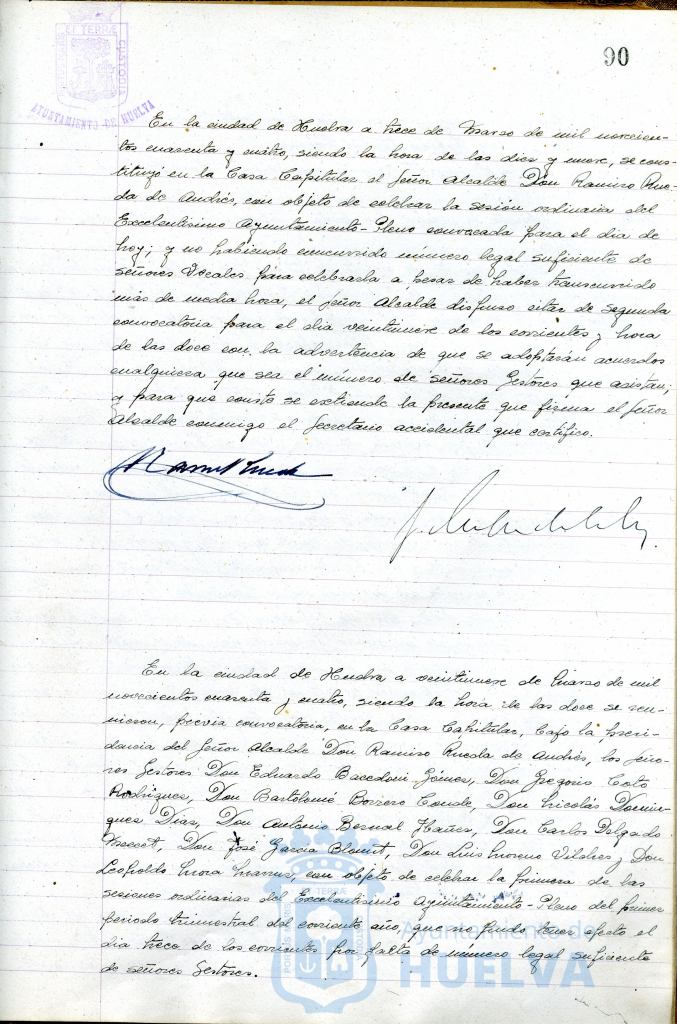 90
PORTUS MARIS ET TERRÆ CUSTODIA
AYUNTAMIENTO DE HUELVA
En la ciudad de Huelva a trece de Marzo de mil novecien-
tos cuarenta y cuatro, siendo la hora de las diez y nueve, se cons-
tituyó en la Casa Capitular el Señor Alcalde Don Ramiro Rue-
da de Andrés, con objeto de celebrar la sesión ordinaria del
Excelentísimo Ayuntamiento-Pleno convocada para el dia de
hoy; y no habiendo concurrido número legal suficiente de
señores Vocales para celebrarla a pesar de haber transcurrido
más de media hora, el Señor Alcalde dispuso citar de segunda
convocatoria para el dia veintinueve de los corrientes y hora
de las doce con la advertencia de que se adoptarán acuerdos
cualquiera que sea el número de señores Gestores que asistan;
y para que conste se extiende la presente que firma el Señor
Alcalde conmigo el Secretario accidental que certifico.
En la ciudad de Huelva a veintinueve de Marzo de mil
novecientos cuarenta y cuatro, siendo la hora de las doce se reu-
nieron, previa convocatoria, en la Casa Capitular, bajo la presi-
dencia del Señor Alcalde Don Ramiro Rueda de Andrés, los seño-
res Gestores Don Eduardo Bacedoni Gómez, Don Gregorio Coto
Rodríguez, Don Bartolomé Borrero Conde, Don Nicolás Domín-
guez Díaz, Don Antonio Bernal Ibañez, Don Carlos Delgado
Don José García Don Luis Moreno Vilches y Don
Leopoldo Mora con objeto de celebrar la primera de las
sesiones ordinarias del Excelentísimo Ayuntamiento-Pleno del primer
periodo trimestral del corriente año, que no pudo tener efecto el
dia trece de los corrientes por falta de número legal suficiente
de señores Gestores.
Ayuntamiento de
HUELVA